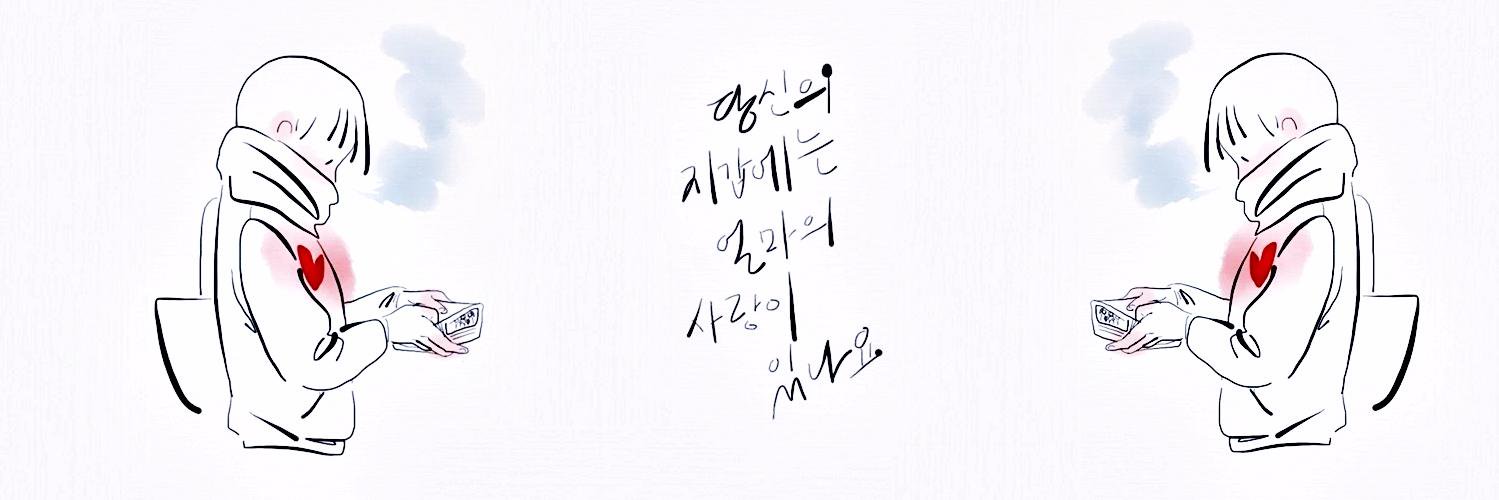 당신의
지갑에는
얼마의
사랑이
있나요